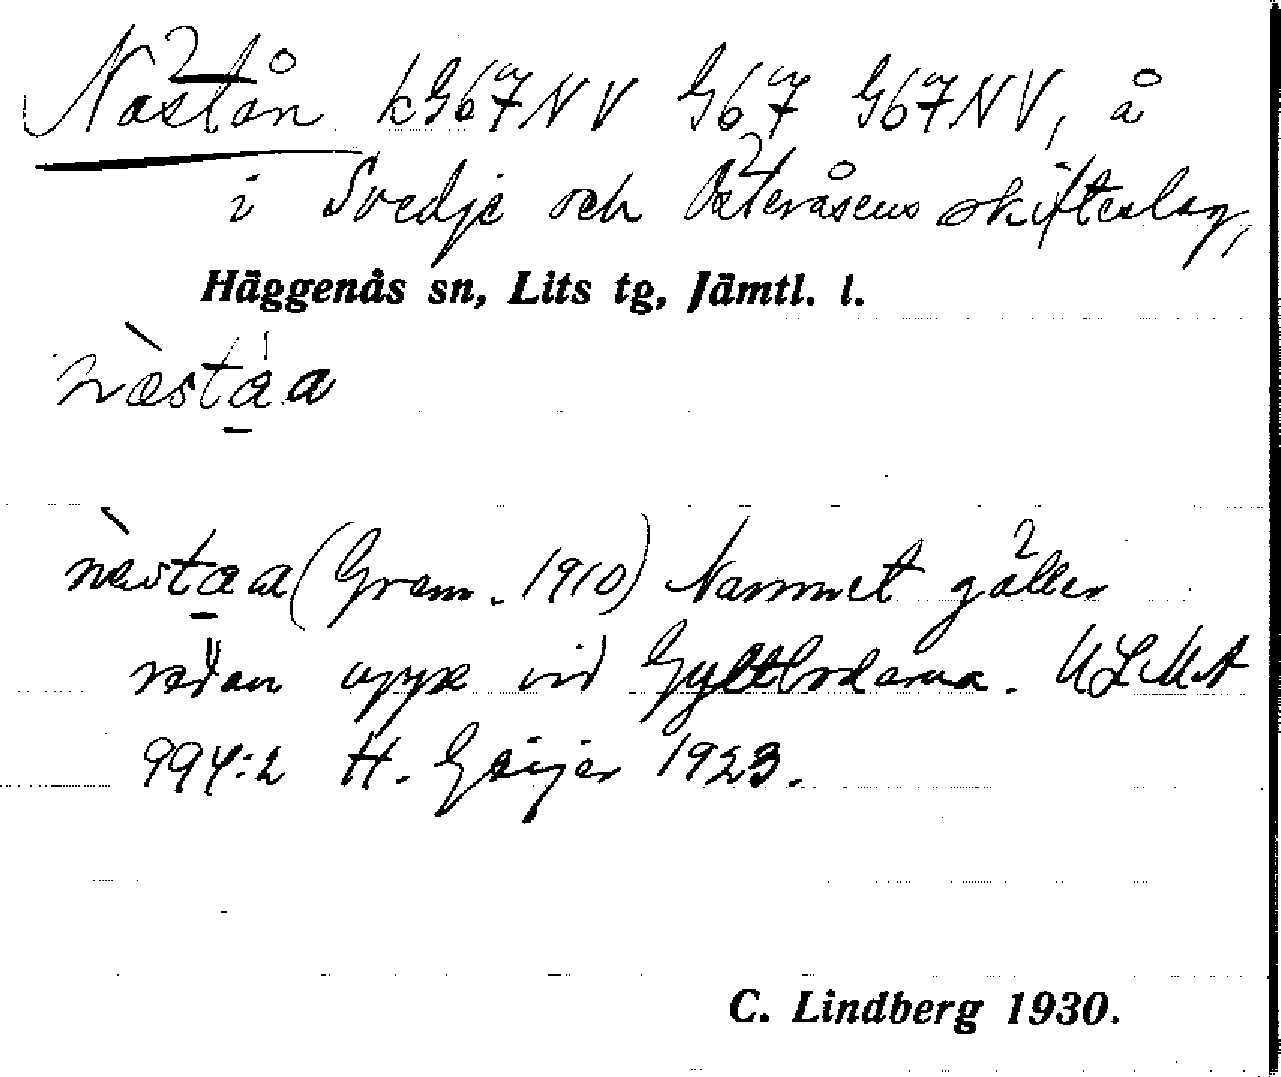 Nästån k967NV G67 G67NV, å
i Svedje och Österåsens skifteslag,
Häggenås sn, Lits tg, Jämtl. l.
næ̀sta̱a
næ̀sta̱a (Gram. 1910) Namnet gäller
redan uppe vid Gyltbodarna. ULMA
994:2 H. Geijer 1923.
C. Lindberg 1930.